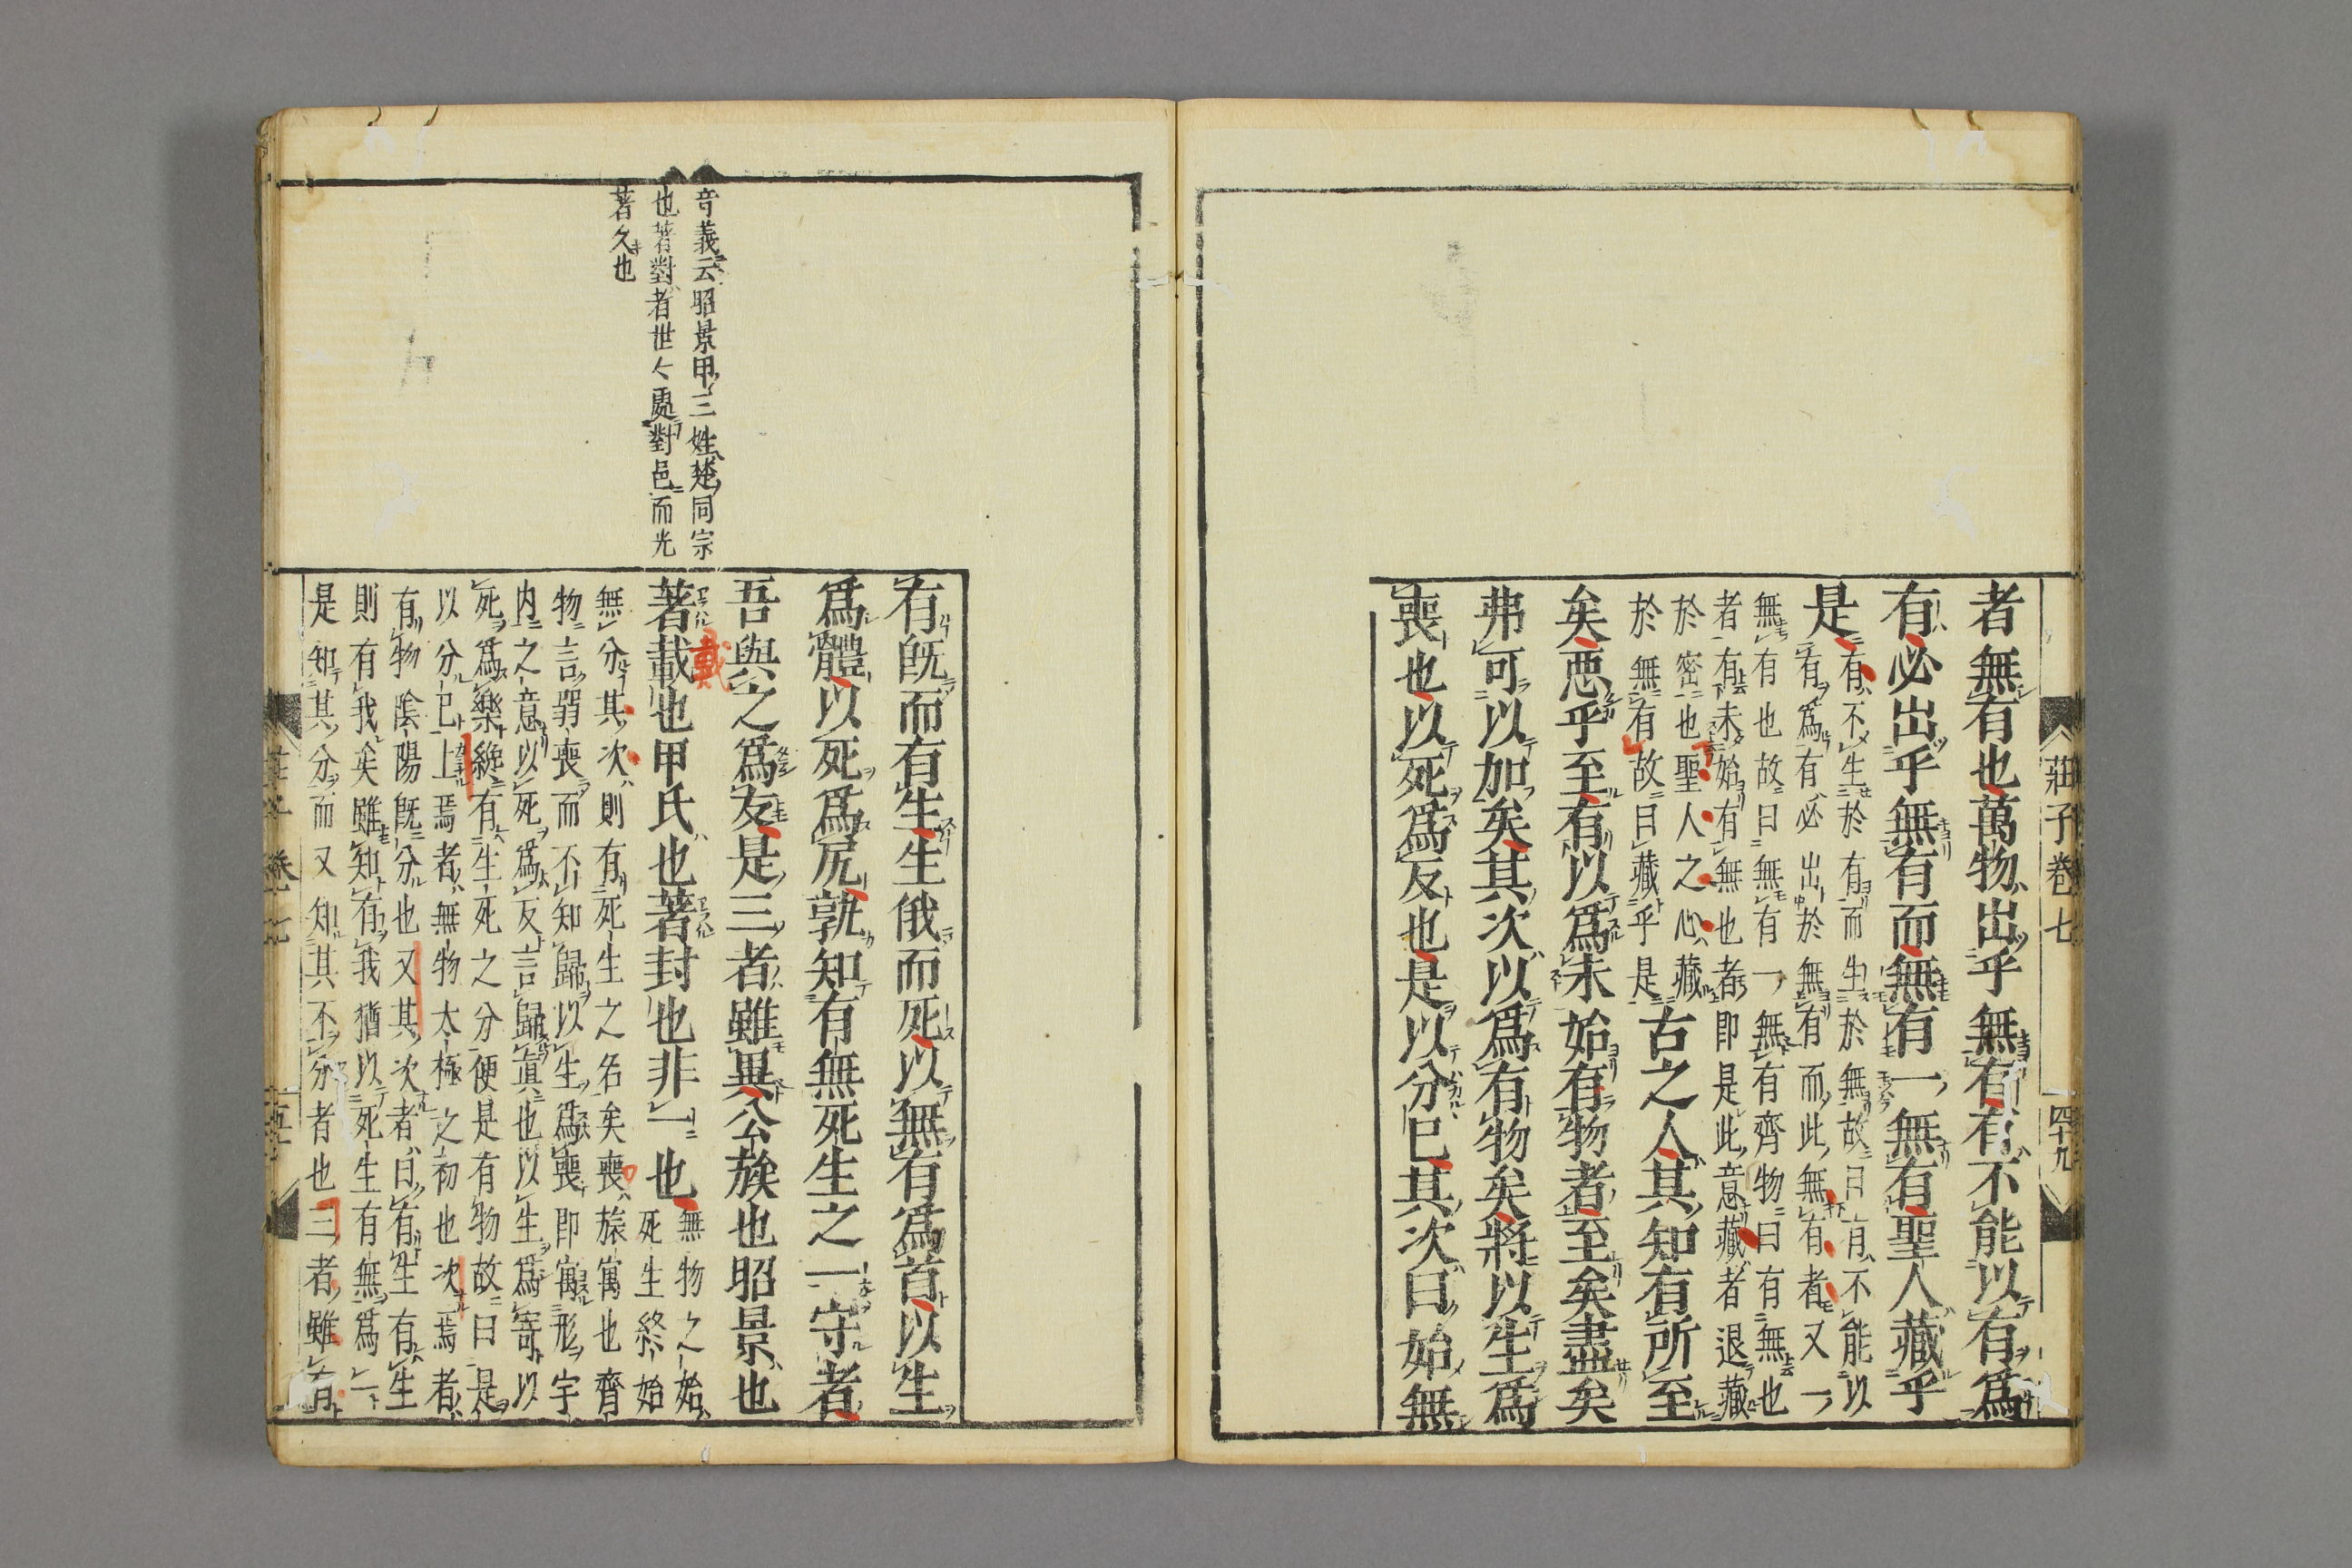 莊子卷七
四十九
者無有也萬物出乎無有有不能以有爲
有必出乎無有而無有一無有聖人藏乎
是
有不生於有而生於無故曰有不能以
有爲有必出於無有而此無有者又一
無有也故曰無有一無有齊物曰有無也
者有未始有無也者即是此意藏者退藏
於密也聖人之心藏
於無有故曰藏乎是
古之人其知有所至
矣惡乎至有以爲未始有物者至矣盡矣
弗可以加矣其次以爲有物矣將以生爲
喪也以死爲反也是以分已其次曰始無
有既而有生生俄而死以無有爲首以生
爲體以死爲尻孰知有無死生之一守者
吾與之爲友是三者雖異公族也昭景也
著載也甲氏也著封也非一也
戴
無物之始
死生終始
無分其次則有死生之名矣喪旅寓也齊
物言弱喪而不知歸以生爲喪即寓形宇
内之意以死爲反言歸眞也以生爲寄以
死爲樂纔有生死之分便是有物故曰是
以分已上焉者無物太極之初也次焉者
有物陰陽既分也又其次者曰有生有生
則有我矣雖知有我猶以死生有無爲一
是知其分而又知其不分者也三者雖有
音義云昭景甲三姓楚同宗
也著對者世々處對邑而光
著久也
莊子 卷七
五十